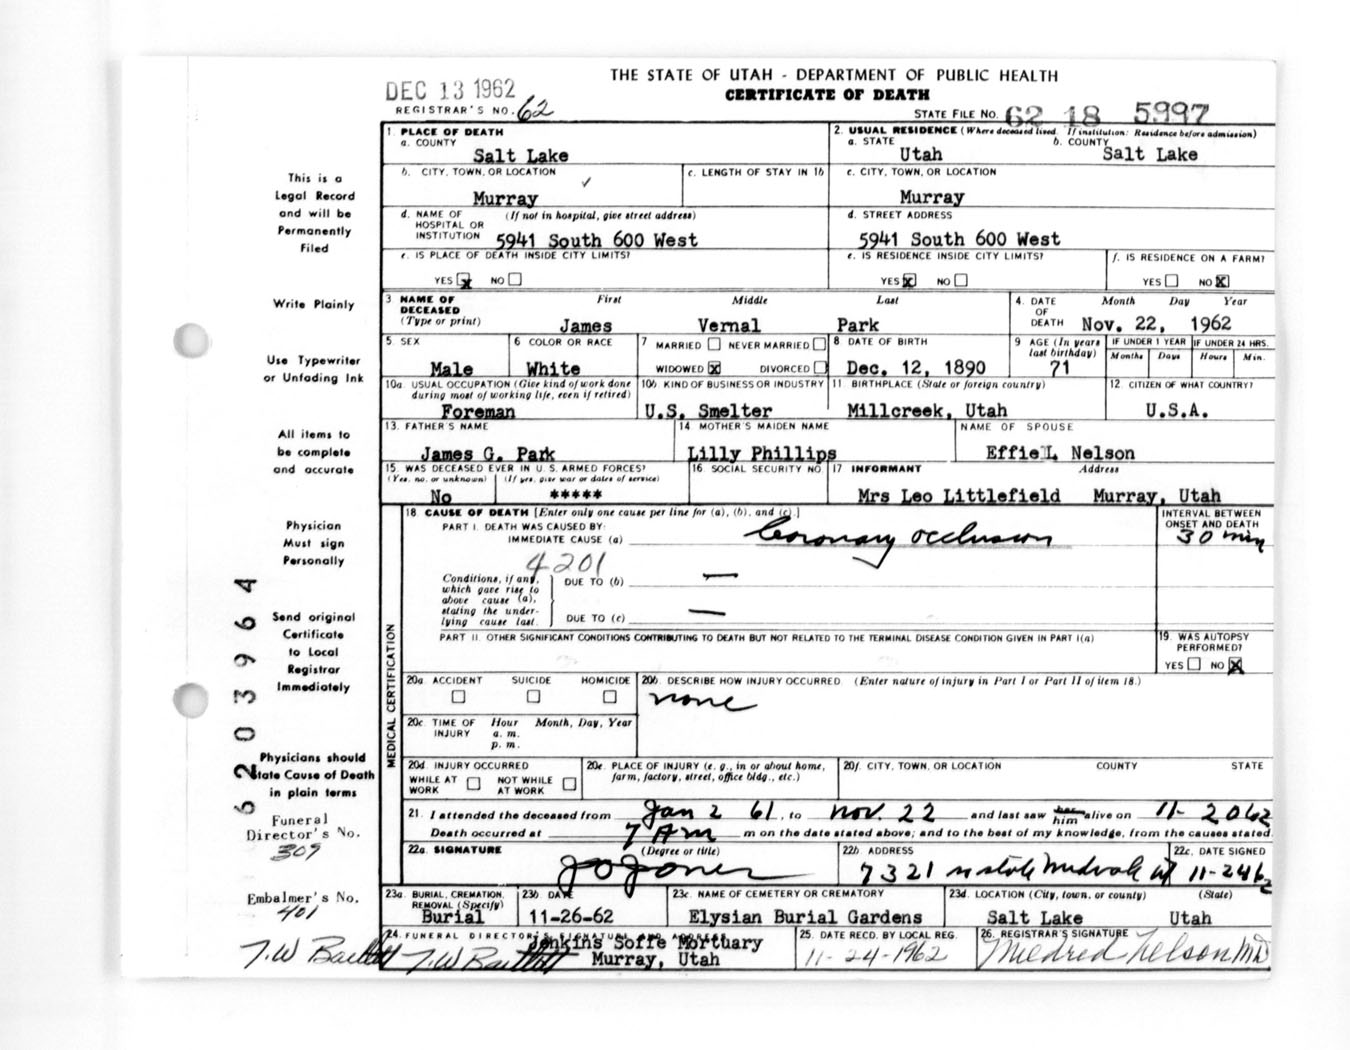 THE STATE OF UTAH - DEPARTMENT OF PUBLIC HEALTH
DEC 13 1962
CERTIFICATE OF DEATH
REGISTRAR'S NO. 62
STATE FILE NO. 62 18 5997
1. PLACE OF DEATH
a. COUNTY
Salt Lake
2. USUAL RESIDENCE (Where deceased lived. If institution: Residence before admission)
a. STATE b. COUNTY
Utah Salt Lake
b. CITY, TOWN, OR LOCATION
Murray
c. LENGTH OF STAY IN 1b
c. CITY, TOWN, OR LOCATION
Murray
d. NAME OF (If not in hospital, give street address)
HOSPITAL OR
INSTITUTION 5941 South 600 West
d. STREET ADDRESS
5941 South 600 West
e. IS PLACE OF DEATH INSIDE CITY LIMITS?
YES x NO
e. IS RESIDENCE INSIDE CITY LIMITS?
YES x NO
f. IS RESIDENCE ON A FARM?
YES NO x
3 NAME OF First Middle Last
DECEASED
(Type or print) James Vernal Park
4. DATE Month Day Year
OF
DEATH Nov. 22, 1962
5. SEX
Male
6 COLOR OR RACE
White
7 MARRIED NEVER MARRIED
WIDOWED x DIVORCED
8 DATE OF BIRTH
Dec. 12, 1890
9 AGE (In years
last birthday)
71
IF UNDER 1 YEAR
Months Days
IF UNDER 24 HRS.
Hours Min.
10a. USUAL OCCUPATION (Give kind of work done
during most of working life, even if retired)
Foreman
10b. KIND OF BUSINESS OR INDUSTRY
U.S. Smelter
11 BIRTHPLACE (State or foreign country)
Millcreek, Utah
12. CITIZEN OF WHAT COUNTRY?
U.S.A.
13. FATHER'S NAME
James G. Park
14 MOTHER'S MAIDEN NAME
Lilly Phillips
NAME OF SPOUSE
Effie L Nelson
15. WAS DECEASED EVER IN U. S. ARMED FORCES?
(Yes, no. or unknown) (If yes, give war or dates of service)
No *****
16. SOCIAL SECURITY NO.
17 INFORMANT Address
Mrs Leo Littlefield Murray, Utah
18. CAUSE OF DEATH [Enter only one cause per line for (a), (b), and (c).]
PART I. DEATH WAS CAUSED BY:
IMMEDIATE CAUSE (a) Coronary occlusion
INTERVAL BETWEEN
ONSET AND DEATH
30 min
4201
Conditions, if any,
which gave rise to
above cause (a),
stating the under-
lying cause last.
DUE TO (b) —
DUE TO (c) —
PART II. OTHER SIGNIFICANT CONDITIONS CONTRIBUTING TO DEATH BUT NOT RELATED TO THE TERMINAL DISEASE CONDITION GIVEN IN PART I(a)
19. WAS AUTOPSY
PERFORMED?
YES NO x
MEDICAL CERTIFICATION
20a. ACCIDENT SUICIDE HOMICIDE
20b. DESCRIBE HOW INJURY OCCURRED. (Enter nature of injury in Part I or Part II of item 18.)
none
20c. TIME OF Hour Month, Day, Year
INJURY a. m.
p. m.
20d. INJURY OCCURRED
WHILE AT NOT WHILE
WORK AT WORK
20e. PLACE OF INJURY (e. g., in or about home,
farm, factory, street, office bldg., etc.)
20f. CITY, TOWN, OR LOCATION COUNTY STATE
21. I attended the deceased from Jan 2 61, to Nov. 22 and last saw her him alive on 11-20 62
Death occurred at 7 Am m on the date stated above; and to the best of my knowledge, from the causes stated.
22a. SIGNATURE (Degree or title)
22b. ADDRESS
7321 State Midvale Ut
22c. DATE SIGNED
11-24 62
23a. BURIAL, CREMATION
REMOVAL (Specify)
Burial
23b. DATE
11-26-62
23c. NAME OF CEMETERY OR CREMATORY
Elysian Burial Gardens
23d. LOCATION (City, town, or county) (State)
Salt Lake Utah
24. FUNERAL DIRECTOR'S SIGNATURE AND ADDRESS
Jenkins Soffe Mortuary
T.W Bartlett Murray, Utah
25. DATE RECD. BY LOCAL REG.
11-24-1962
26. REGISTRAR'S SIGNATURE
Mildred Nelson MD
This is a
Legal Record
and will be
Permanently
Filed
Write Plainly
Use Typewriter
or Unfading Ink
All items to
be complete
and accurate
Physician
Must sign
Personally
Send original
Certificate
to Local
Registrar
Immediately
Physicians should
state Cause of Death
in plain terms
Funeral
Director's No.
309
Embalmer's No.
401
T.W Bartlett
6203964